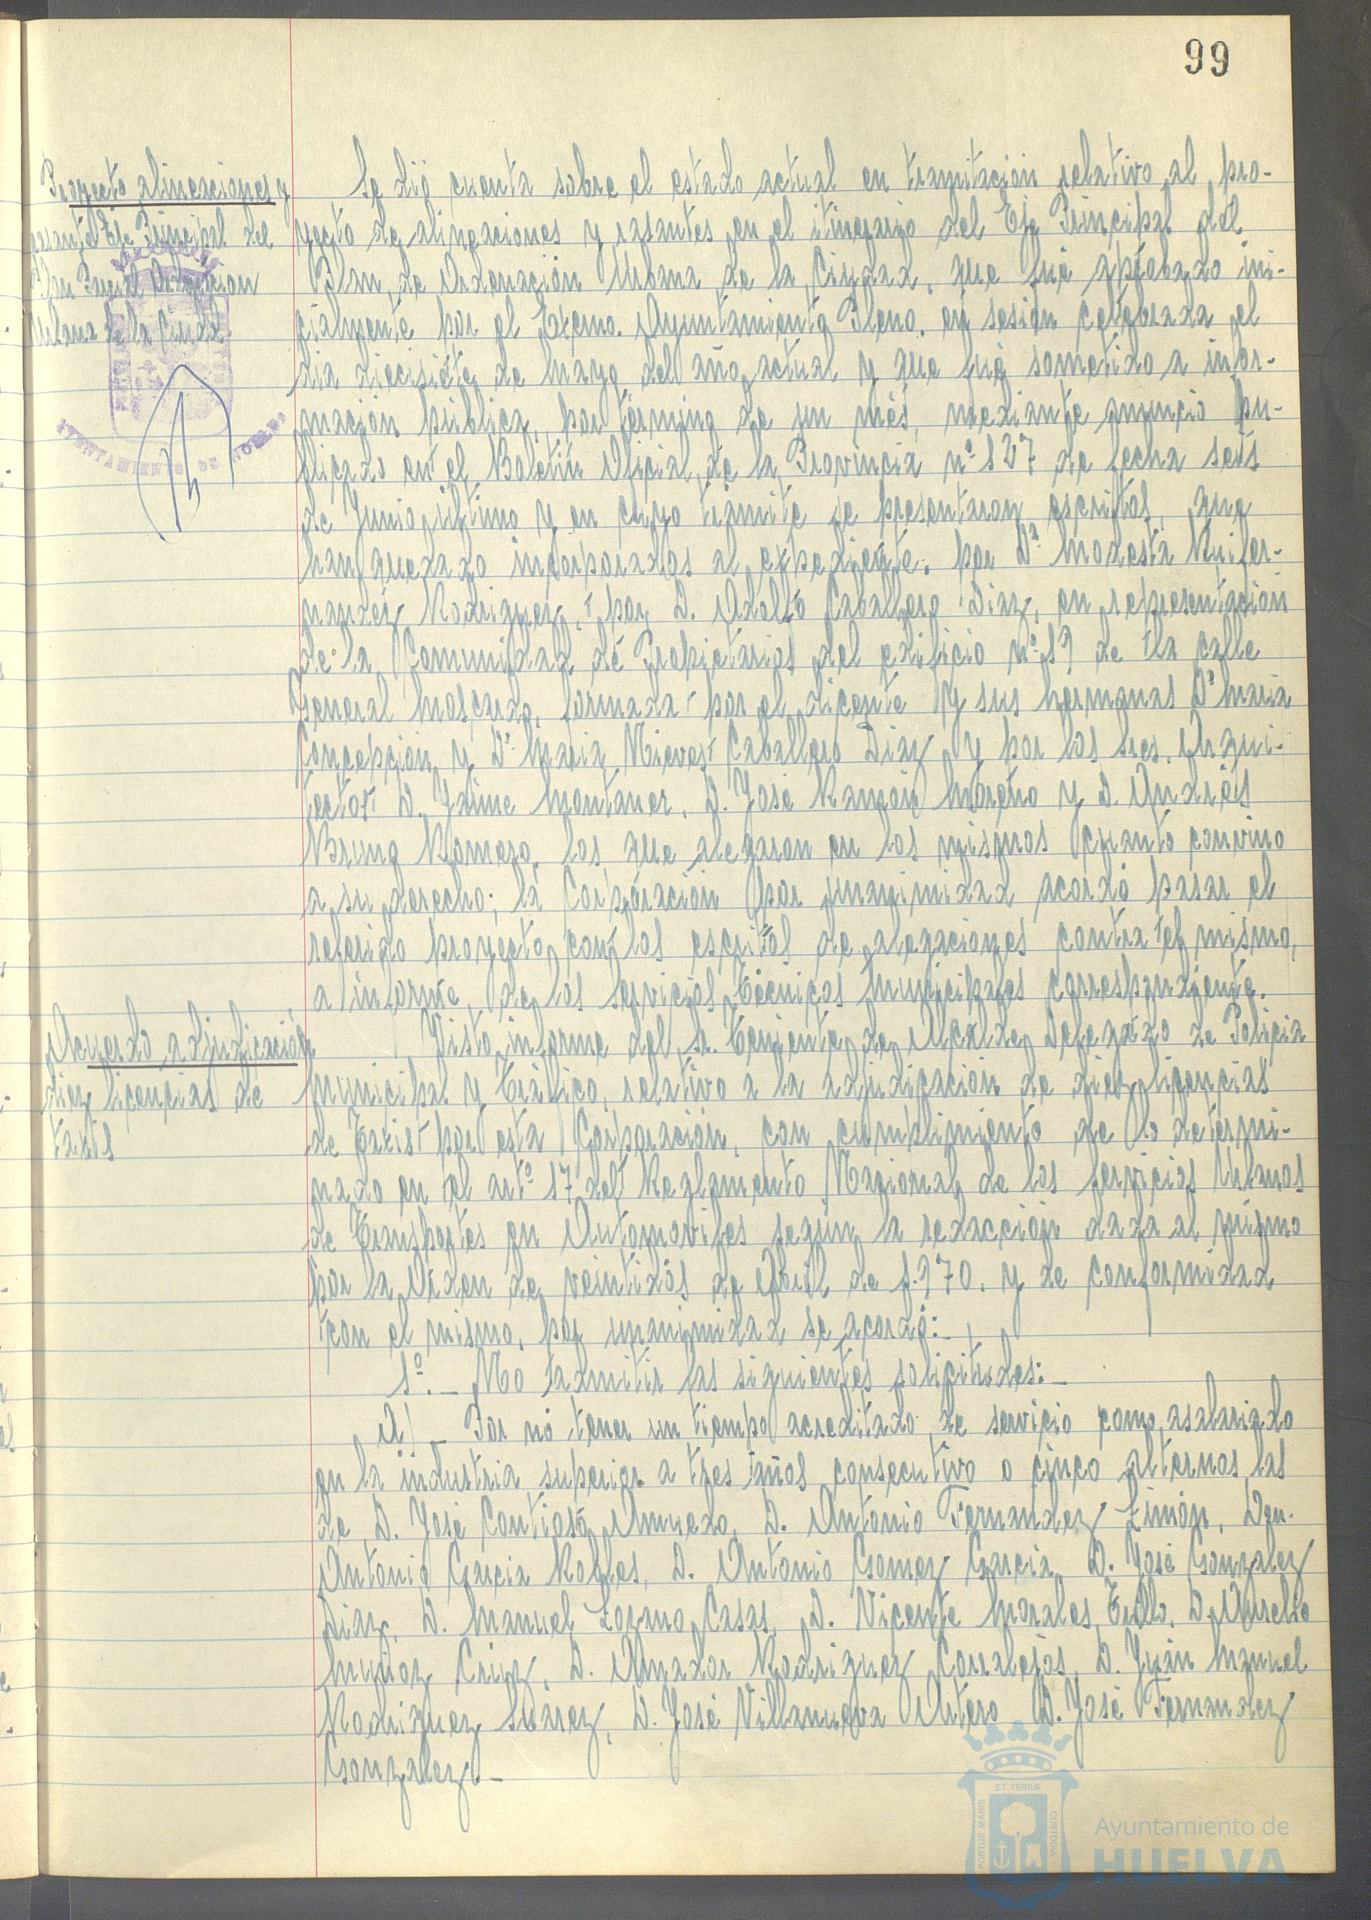 99
Proyecto alineaciones y
rasante Eje Principal del
Plan Parcial Ordenacion
Urbana de la Ciudad
AYUNTAMIENTO DE HUELVA
Se dió cuenta sobre el estado actual en tramitación relativo al pro-
yecto de alineaciones y rasantes en el itinerario del Eje Principal del
Plan de Ordenación Urbana de la Ciudad, que fué aprobado ini-
cialmente por el Excmo. Ayuntamiento Pleno, en sesión celebrada el
dia diecisiete de Marzo del año actual y que fué sometido a infor-
mación pública, por término de un més, mediante anuncio pu-
blicado en el Boletín Oficial de la Provincia nº 127 de fecha seis
de Junio último y en cuyo trámite se presentaron escritos, que
han quedado incorporados al expediente, por Dª Modesta Ruifer-
nandez Rodriguez, por D. Adolfo Caballero Diaz, en representación
de la Comunidad de Propietarios del edificio nº 19 de la calle
General Moscardo, formada por el dicente y sus hermanas Dª Maria
Concepción y Dª Maria Nieves Caballero Diaz y por los Sres. Arqui-
tectos D. Jaime Montaner, D. José Ramón Moreno y D. Andrés
Bruno Romero, los que alegaron en los mismos cuanto convino
a su derecho; la Corporación por unanimidad acordó pasar el
referido proyecto con los escritos de alegaciones contra el mismo,
a informe de los Servicios Técnicos Municipales correspondiente.
Acuerdo adjudicación
diez licencias de
taxis
Visto informe del Sr. Teniente de Alcalde Delegado de Policia
Municipal y Tráfico, relativo a la adjudicación de diez licencias
de Taxis por esta Corporación, con cumplimiento de lo determi-
nado en el artº 17 del Reglamento Nacional de los Servicios Urbanos
de Transportes en Automoviles según la redacción dada al mismo
por la Orden de veintidós de Abril de 1.970. y de conformidad
con el mismo, por unanimidad se acordó:-
1º.- No admitir las siguientes solicitudes:-
A) - Por no tener un tiempo acreditado de servicio como asalariado
en la industria superior a tres años consecutivo o cinco alternos, las
de D. José Contioso Amuedo, D. Antonio Fernandez Limón, Don.
Antonio Garcia Robles, D. Antonio Gomez Garcia, D. José Gonzalez
Diaz, D. Manuel Lozano Casas, D. Vicente Morales Tello, D. Aurelio
Muñoz Cruz, D. Amador Rodriguez Corralejos, D. Juan Manuel
Rodriguez Suárez, D. José Villanueva Otero D. José Fernandez
Gonzalez.-
PORTUS MARIS ET TERRÆ CUSTODIA
Ayuntamiento de
HUELVA